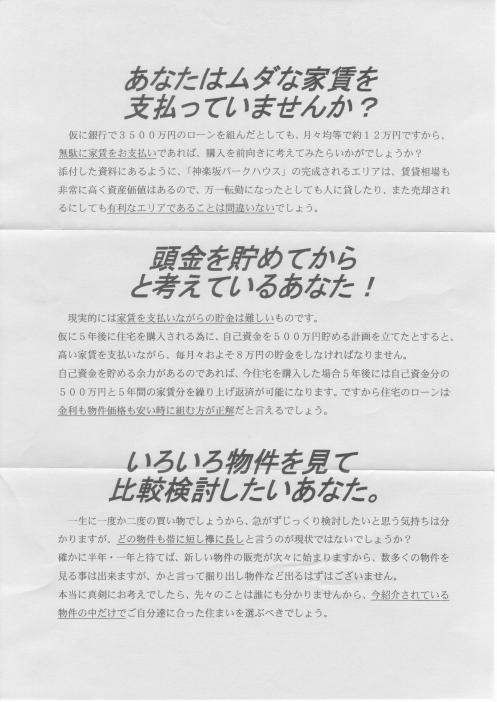 あなたはムダな家賃を
支払っていませんか？
仮に銀行で３５００万円のローンを組んだとしても、月々均等で約１２万円ですから、
無駄に家賃をお支払いであれば、購入を前向きに考えてみたらいかがでしょうか？
添付した資料にあるように、「神楽坂パークハウス」の完成されるエリアは、賃貸相場も
非常に高く資産価値はあるので、万一転勤になったとしても人に貸したり、また売却され
るにしても有利なエリアであることは間違いないでしょう。
頭金を貯めてから
と考えているあなた！
現実的には家賃を支払いながらの貯金は難しいものです。
仮に５年後に住宅を購入される為に、自己資金を５００万円貯める計画を立てたとすると、
高い家賃を支払いながら、毎月々およそ８万円の貯金をしなければなりません。
自己資金を貯める余力があるのであれば、今住宅を購入した場合５年後には自己資金分の
５００万円と５年間の家賃分を繰り上げ返済が可能になります。ですから住宅のローンは
金利も物件価格も安い時に組む方が正解だと言えるでしょう。
いろいろ物件を見て
比較検討したいあなた。
一生に一度か二度の買い物でしょうから、急がずじっくり検討したいと思う気持ちは分
かりますが、どの物件も帯に短し襷に長しと言うのが現状ではないでしょうか？
確かに半年・一年と待てば、新しい物件の販売が次々に始まりますから、数多くの物件を
見る事は出来ますが、かと言って掘り出し物件など出るはずはございません。
本当に真剣にお考えでしたら、先々のことは誰にも分かりませんから、今紹介されている
物件の中だけでご自分達に合った住まいを選ぶべきでしょう。